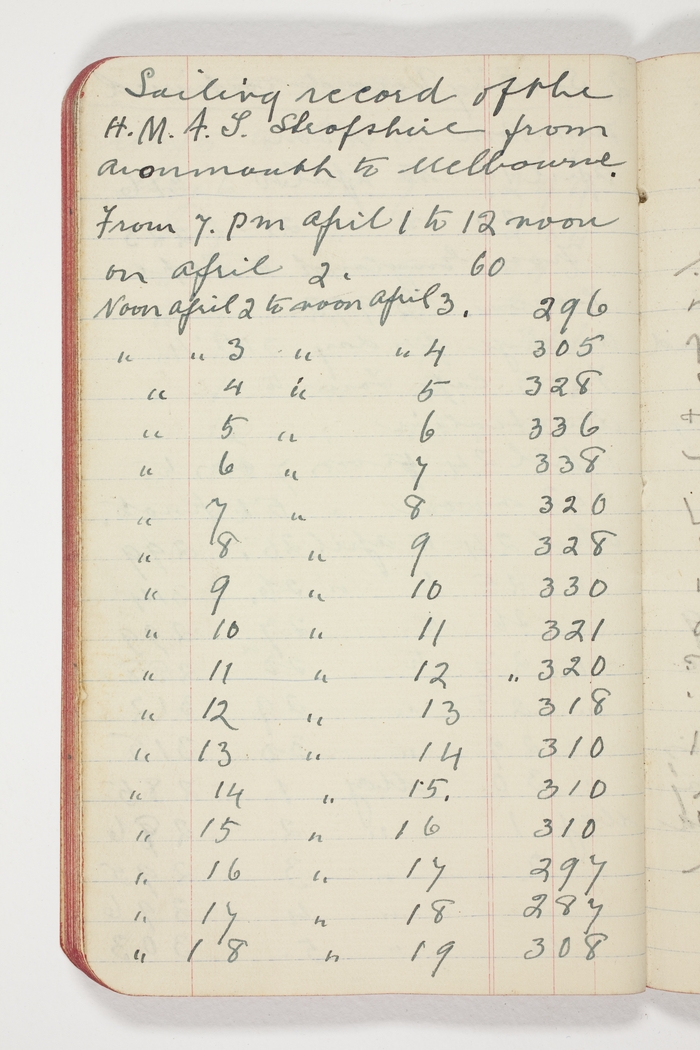 Sailing record of the
H.M.A.S. Shropshire from
Avonmouth to Melbourne.
From 7. pm April 1 to 12 noon
on April 2. 60
Noon April 2 to noon April 3. 296
" " 3 " " 4 305
" 4 " 5 328
" 5 " 6 336
" 6 " 7 338
" 7 " 8 320
" 8 " 9 328
" 9 " 10 330
" 10 " 11 321
" 11 " 12 " 320
" 12 " 13 318
" 13 " 14 310
" 14 " 15. 310
" 15 " 16 310
" 16 " 17 297
" 17 " 18 287
" 18 " 19 308